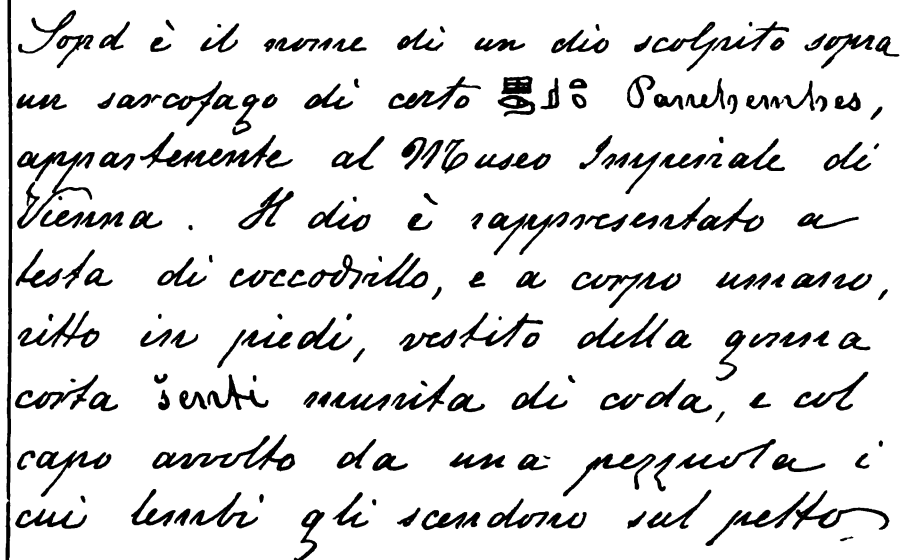 Sopd è il nome di un dio scolpito sopra
un sarcofago di certo Panehemhes,
appartenente al Museo Imperiale di
Vienna. Il dio è rappresentato a
testa di coccodrillo, e a corpo umano,
ritto in piedi, vestito della gonna
corta šenti munita di coda, e col
capo avvolto da una pezzuola i
cui lembi gli scendono sul petto